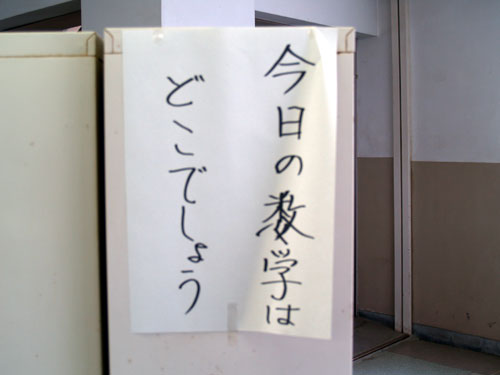 今日の数学は
どこでしょう